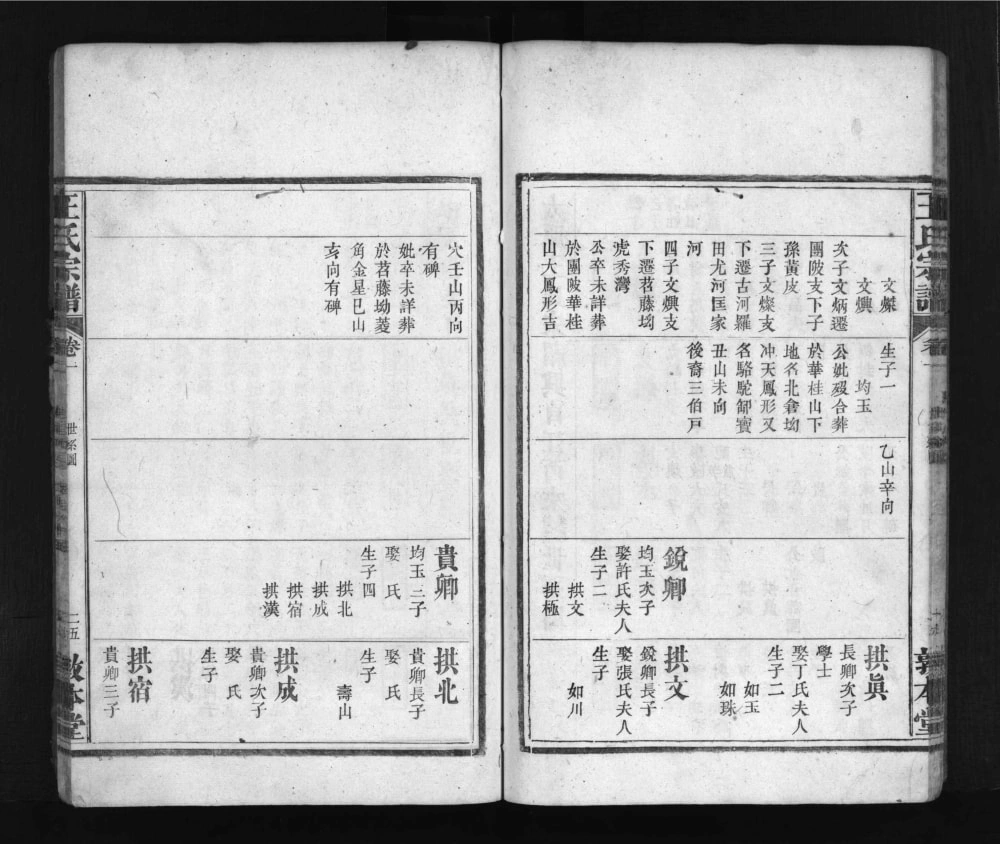 王氏宗譜
卷
敦本堂
文燦
文爕
次子文炳遷
團陂支下子
孫黃皮
三子文燦支
下遷古河羅
田尤河匡家
河
四子文爕支
下遷茗藤坳
虎秀灣
公卒未詳葬
於團陂華桂
山大鳳形吉
生子一
均玉
公妣歿合葬
於華桂山下
地名北畬坳
冲天鳳形又
名駱駝卸寶
丑山未向
後裔三伯戸
乙山辛向
銳卿
均玉次子
娶許氏夫人
生子二
拱文
拱極
拱真
長卿次子
學士
娶丁氏夫人
生子二
如玉
如珠
拱文
銳卿長子
娶張氏夫人
生子
如川
穴壬山丙向
有碑
妣卒未詳葬
於茗藤坳菱
角金星巳山
亥向有碑
貴卿
均玉三子
娶 氏
生子四
拱北
拱成
拱宿
拱漢
拱北
貴卿長子
娶 氏
生子
壽山
拱成
貴卿次子
娶 氏
生子
拱宿
貴卿三子
王氏宗譜
卷一
世系圖
二五
敦本堂